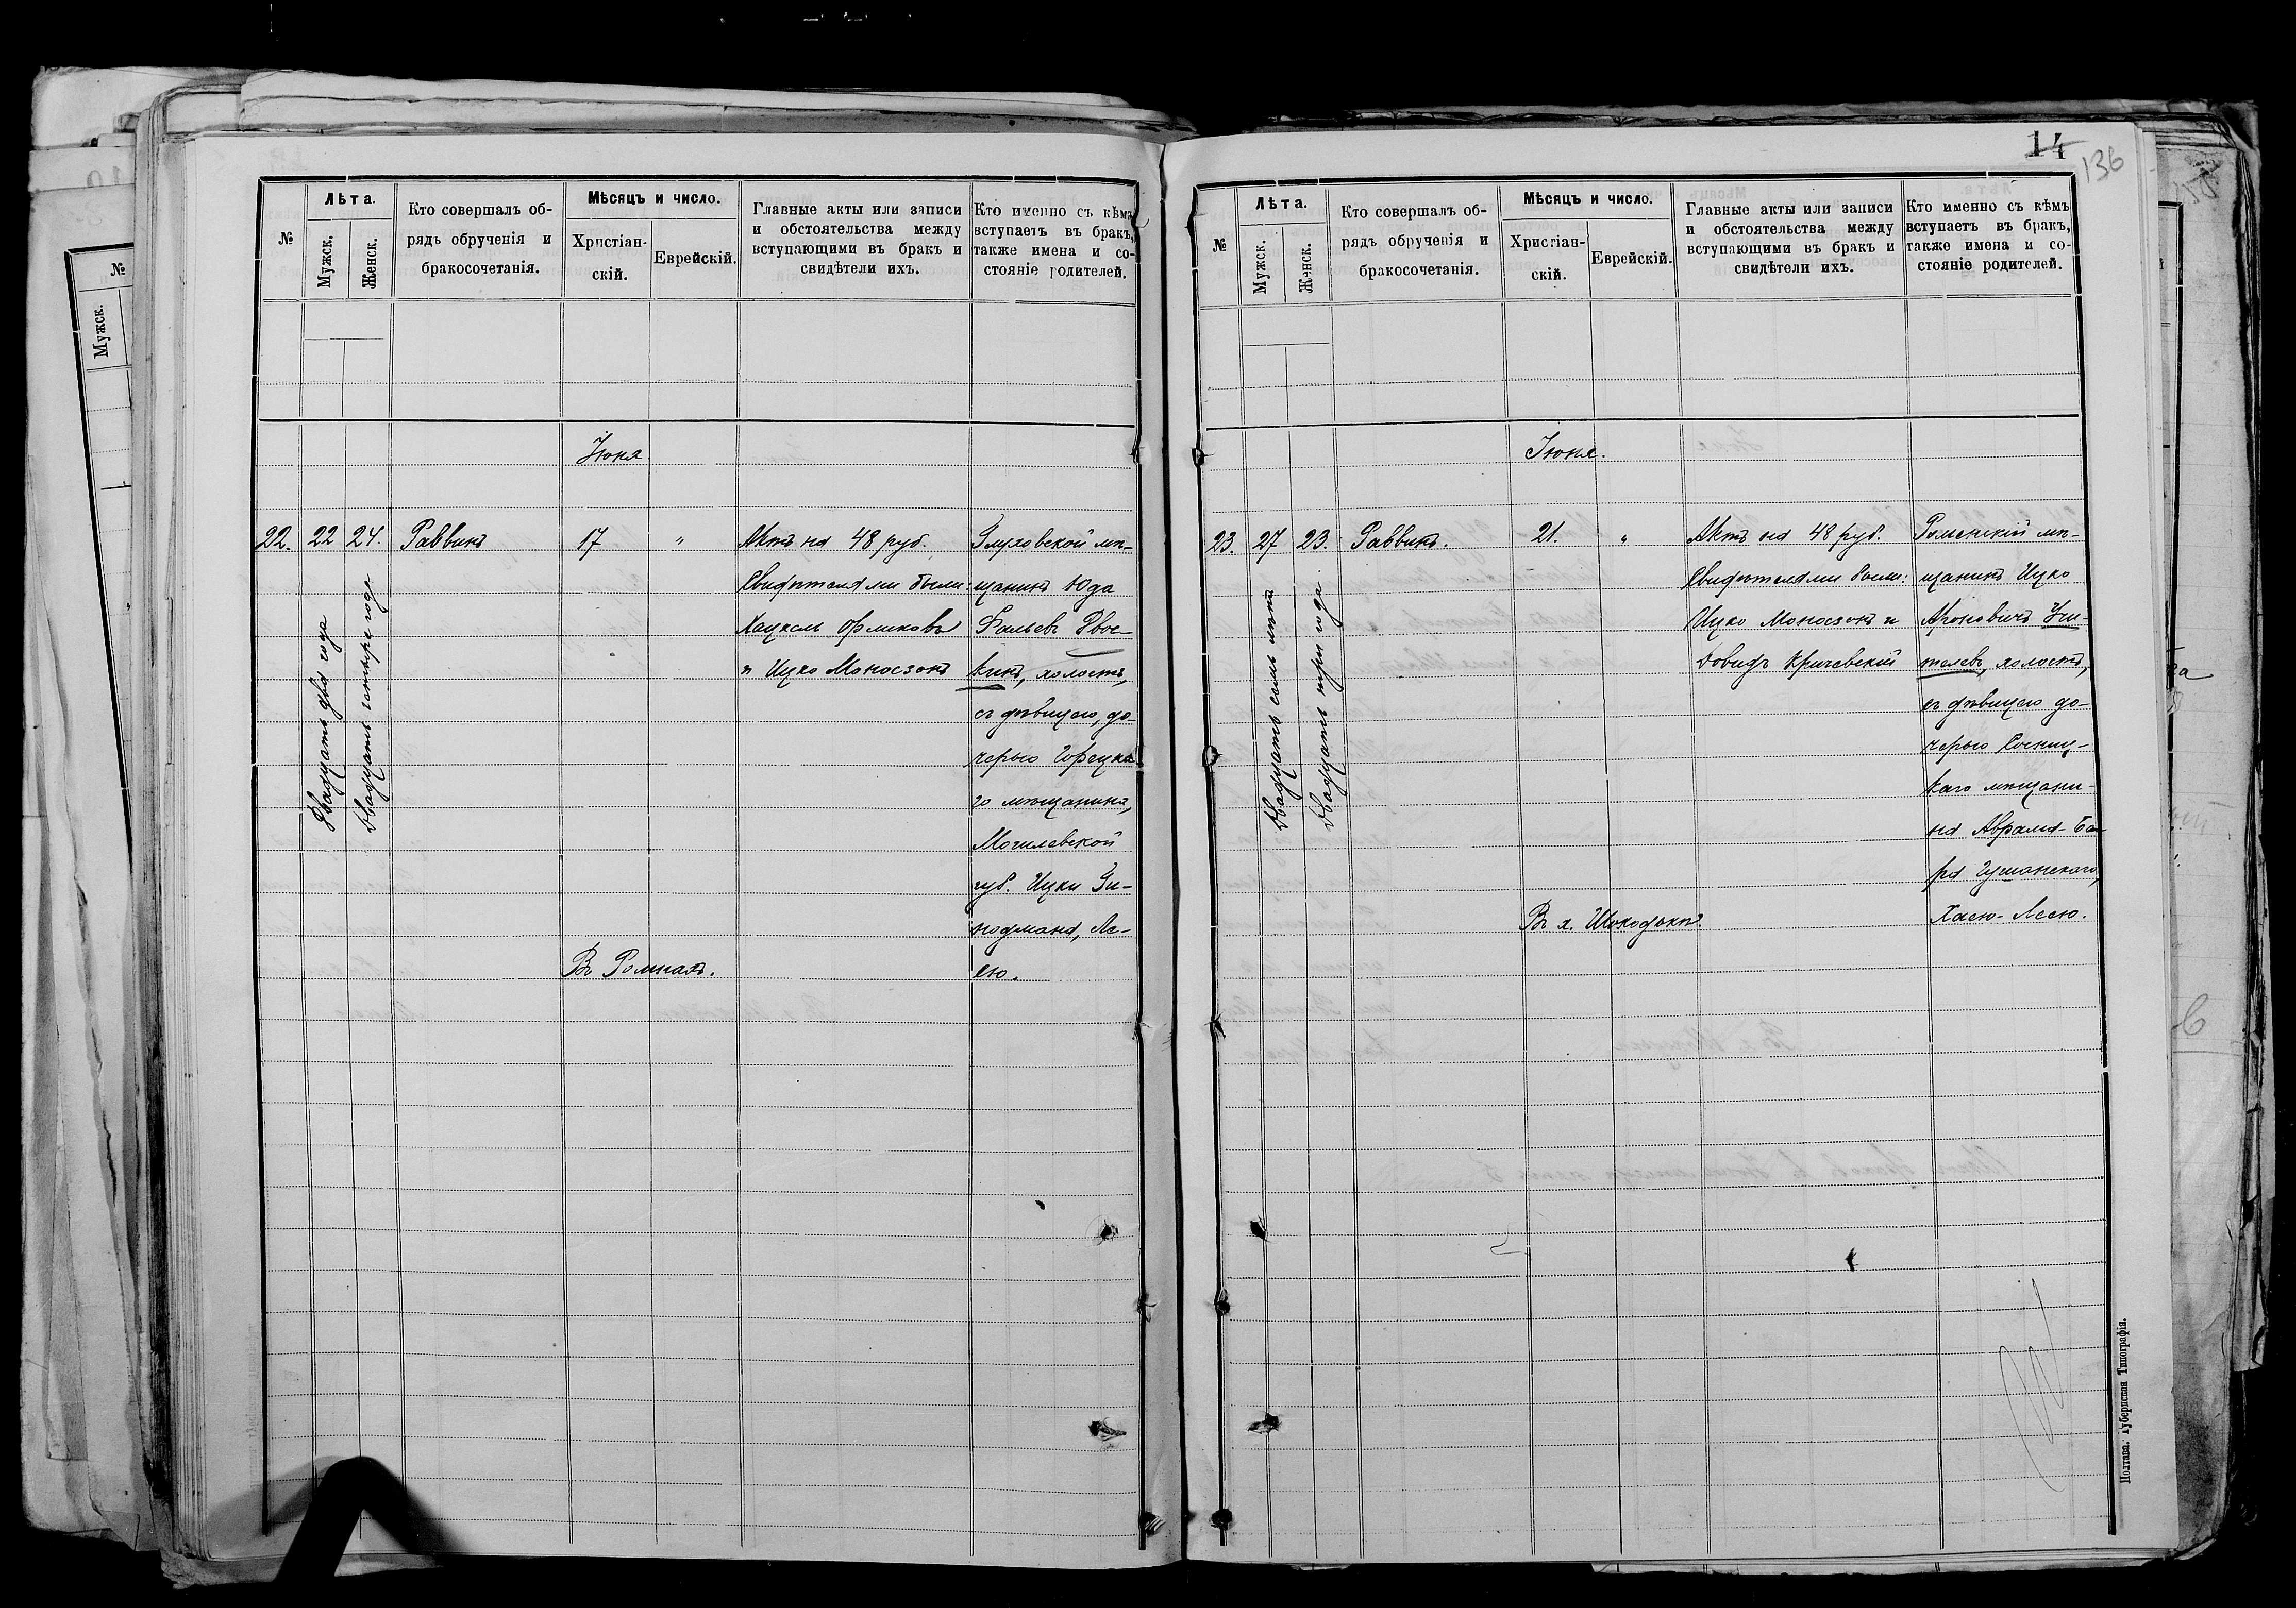 №
Лѣта.
Мужск.
Женск.
Кто совершалъ об-
рядъ обрученія и
бракосочетанія.
Мѣсяцъ и число.
Христіан-
скій.
Еврейскій.
Главные акты или записи
и обстоятельства между
вступающими въ бракъ и
свидѣтели ихъ.
Кто именно съ кѣмъ
вступаетъ въ бракъ,
также имена и со-
стояніе родителей.
Іюня
22.
22
24.
Двадцать два года
Двадцать четыре года
Раввинъ
17
"
Актъ на 48 руб.
Свидѣтелями были:
Хацкель Орликовъ
и Ицко Моносзонъ
Глуховской мѣ-
щанинъ Юда
Фалевъ Двос-
кинъ, холостъ,
съ дѣвицею, до-
черью Горецка
го мѣщанина,
Могилевской
губ. Ицки
Ле-
ею.
Въ Ромнахъ.
14
136
№
Лѣта.
Мужск.
Женск.
Кто совершалъ об-
рядъ обрученія и
бракосочетанія.
Мѣсяцъ и число.
Христіан-
скій.
Еврейскій.
Главные акты или записи
и обстоятельства между
вступающими въ бракъ и
свидѣтели ихъ.
Кто именно съ кѣмъ
вступаетъ въ бракъ,
также имена и со-
стояніе родителей.
Іюня.
23.
27
23.
Двадцать семь лѣтъ
Двадцать три года
Раввинъ.
21.
"
Актъ на 48 руб.
Свидѣтелями были:
Ицко Моносзонъ и
Довидъ Кричевскій
Роменскій мѣ-
щанинъ Ицко
Ароновичъ Учи-
телевъ, холостъ,
съ дѣвицею до-
черью Сосниц-
каго мѣщани-
на Аврама-Бе-
ра Гуманскаго,
Хаею-Леею.
Въ х.
Полтава. Губернская Типографія.
№
Мужск.